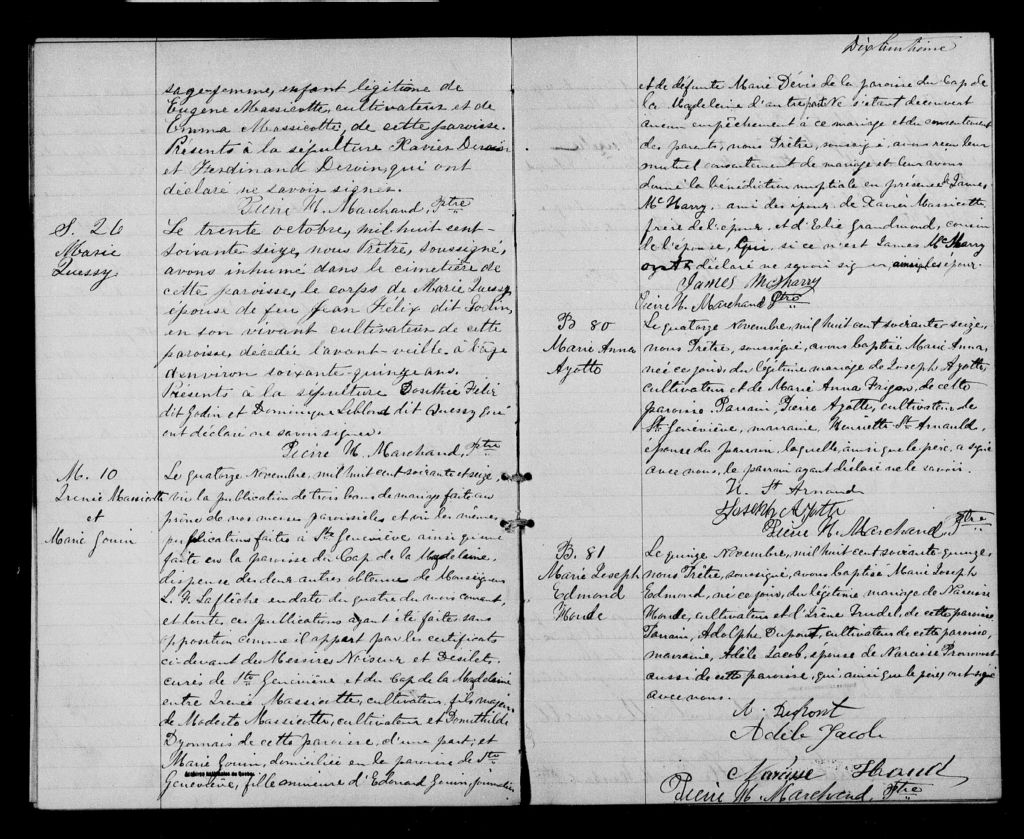 sage-femme, enfant légitime de
Eugène Massicotte, cultivateur et de
Emma Massicotte, de cette paroisse.
Présents à la sépulture Xavier
et Ferdinand Dervin, qui ont
déclaré ne savoir signer.
Pierre H. Marchand, Ptre
S. 26
Marie
Quessy
Le trente octobre, mil huit cent-
soixante seize, nous Prêtre, soussigné,
avons inhumé dans le cimetière de
cette paroisse, le corps de Marie Quessy,
épouse de feu Jean Félix dit Godin,
en son vivant cultivateur de cette
paroisse, décédée l'avant-veille à l'âge
d'environ soixante-quinze ans.
Présents à la sépulture Dosithée Félix
dit Godin et Dominique Leblond dit Quessy qui
ont déclaré ne savoir signer.
Pierre H. Marchand, Ptre
M. 10
Irenée Massicotte
et
Marie Gouin
Le quatorze Novembre, mil huit cent soixante et seize,
vu la publication de trois bans de mariage faite au
prône de nos messes paroissiales et vu les mêmes
publications faites à Ste Geneviève ainsi qu'une
faite en la paroisse du Cap de la Magdeleine,
dispense des deux autres obtenue de Monseigneur
L. F. Laflèche en date du quatre du mois courant,
et toutes ces publications ayant été faites sans
opposition comme il appert par les certificats
ci-devant des Messires Noiseux et Desilets,
curés de Ste Geneviève et du Cap de la Magdeleine
entre Irenée Massicotte, cultivateur, fils majeur
de Modeste Massicotte, cultivateur et Domithilde
Dyonnais de cette paroisse, d'une part; et
Marie Gouin, domiciliée en la paroisse de Ste
Archives nationales du Québec
Geneviève, fille mineure d'Edouard Gouin, journalier
Dixhuitième
et de défunte Marie Denis de la paroisse du Cap de
la Magdeleine d'autre part Ne s'étant découvert
aucun empêchement à ce mariage et du consentement
des parents, nous Prêtre, soussigné, avons reçu leur
mutuel consentement de mariage et leur avons
donné la bénédiction nuptiale en présence de James
McHarry, ami des époux, de Xavier Massicotte,
frère de l'époux, et d'Elie Grandmond, cousin
de l'épouse, Qui, si ce n'est James McHarry
ont déclaré ne savoir signer ainsi les époux.
James McSharry
Pierre H. Marchand Ptre
B 80
Marie Anna
Ayotte
Le quatorze Novembre, mil huit cent soixante-seize,
nous Prêtre, soussigné, avons baptisé Marie Anna,
née ce jour, du légitime mariage de Joseph Ayotte,
cultivateur et de Marie Anna Frigon, de cette
paroisse. Parrain, Pierre Ayotte, cultivateur de
Ste Geneviève, marraine, Henriette St Arnauld,
épouse du parrain, laquelle, ainsi que le père, a signé
avec nous, le parrain ayant déclaré ne le savoir.
H. St Arnaud
Joseph Ayotte
Pierre H. Marchand, Ptre
B. 81
Marie Joseph
Edmond
Houde
Le quinze Novembre, mil huit cent soixante quinze,
nous Prêtre, soussigné, avons baptisé Marie Joseph
Edmond, né ce jour, du légitime mariage de Narcisse
Houde, cultivateur et d'Irène Trudel, de cette paroisse,
Parrain, Adolphe Dupont, cultivateur de cette paroisse,
marraine, Adèle Jacob, épouse de Narcisse Pronovost
aussi de cette paroisse, qui ainsi que le père, ont signé
avec nous.
A. Dupont
Adèle Jacob
Narcisse Houde
Pierre H. Marchand, Ptre